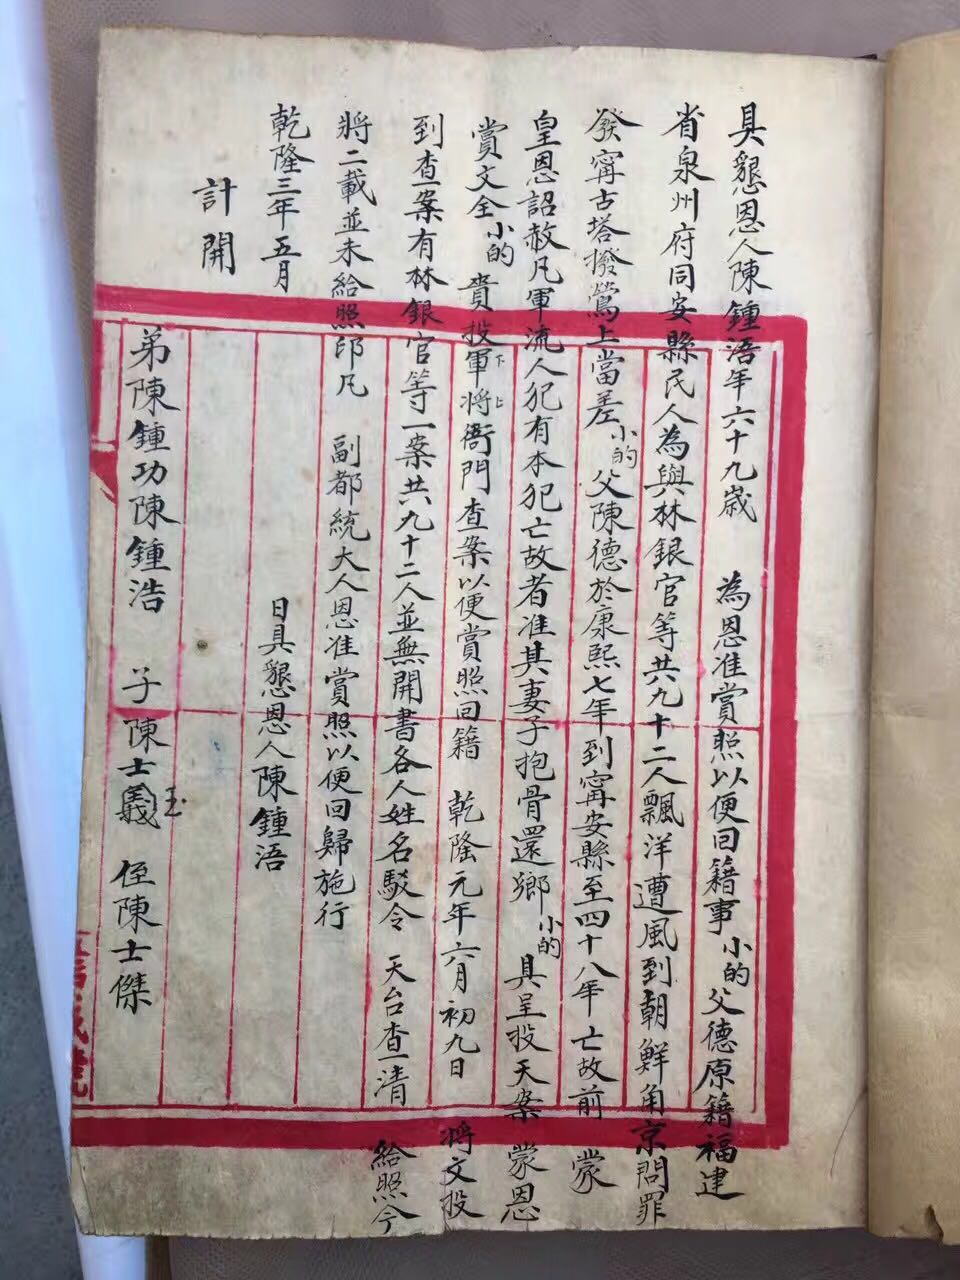 具懇恩人陳鍾浯年六十九歲 為恩准賞照以便回籍事小的父德原籍福建
省泉州府同安縣民人為與林銀官等共九十二人飄洋遭風到朝鮮角京問罪
發寗古塔撥鶯上當差小的父陳德於康熙七年到寗安縣至四十八年亡故前 蒙
皇恩詔赦凡軍流人犯有本犯亡故者准其妻子抱骨還鄉小的具呈投天案 蒙恩
賞文全小的賫投軍下將上衙門查案以便賞照回籍 乾隆元年六月初九日 將文投
到查案有林銀官等一案共九十二人並無開書各人姓名駁令 天台查清 給照今
將二載並未給照印凡 副都統大人恩准賞照以便回歸施行
乾隆三年五月 日具懇恩人陳鍾浯
計開
弟陳鍾功陳鍾浩 子陳士義玉 侄陳士傑